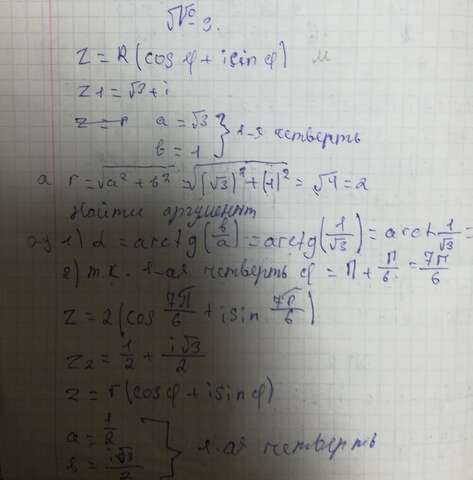 № 3.
z = R(cos φ + i sin φ)
z1 = √3 + i
z = r a = √3
b = 1 } 1-я четверть
r = √(a² + b²) = √((√3)² + (1)²) = √4 = 2
Найти аргумент
1) α = arctg(b/a) = arctg(1/√3) = arct 1/√3 =
2) т.к. 1-ая четверть φ = π + π/6 = 7π/6
z = 2(cos 7π/6 + i sin 7π/6)
z2 = 1/2 + i√3/2
z = r(cos φ + i sin φ)
a = 1/2
b = i√3/2 } 1-ая четверть